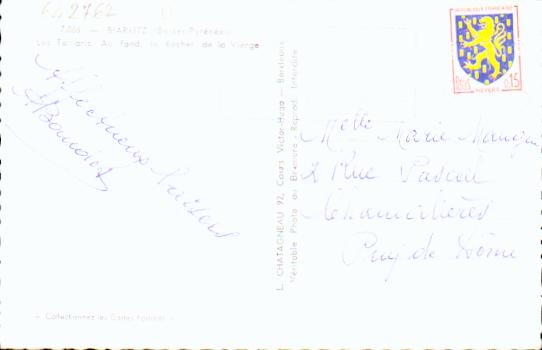 642762
7.006 — BIARRITZ (Basses-Pyrénées)
Les Tamaris. Au fond, le Rocher de la Vierge
Affectueux baisers
L. CHATAGNEAU 92, Cours Victor-Hugo — Bordeaux
Véritable Photo au Bromure - Reprod. Interdite
REPUBLIQUE FRANÇAISE
Postes 0,15
NEVERS
Melle Marie
2 Rue Pascal
Chamalières
Puy de Dôme
— Collectionnez les Cartes Postales —